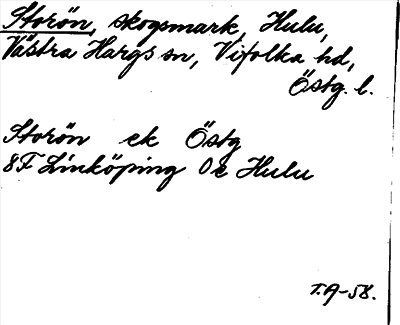 Storön, skogsmark, Hulu,
Västra Hargs sn, Vifolka hd,
Östg. l.
Storön ek Östg
8F Linköping 0e Hulu
T.A-58.